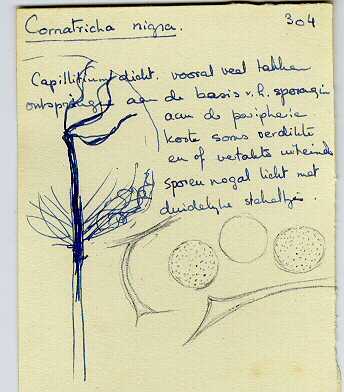 Comatricha nigra.
304
Capillitium dicht. vooral veel takken
ontspringen aan de basis v.h. sporangium
aan de periferie
korte soms verdikte
en of vertakte uiteinde
sporen nogal licht met
duidelijke stekeltjes.